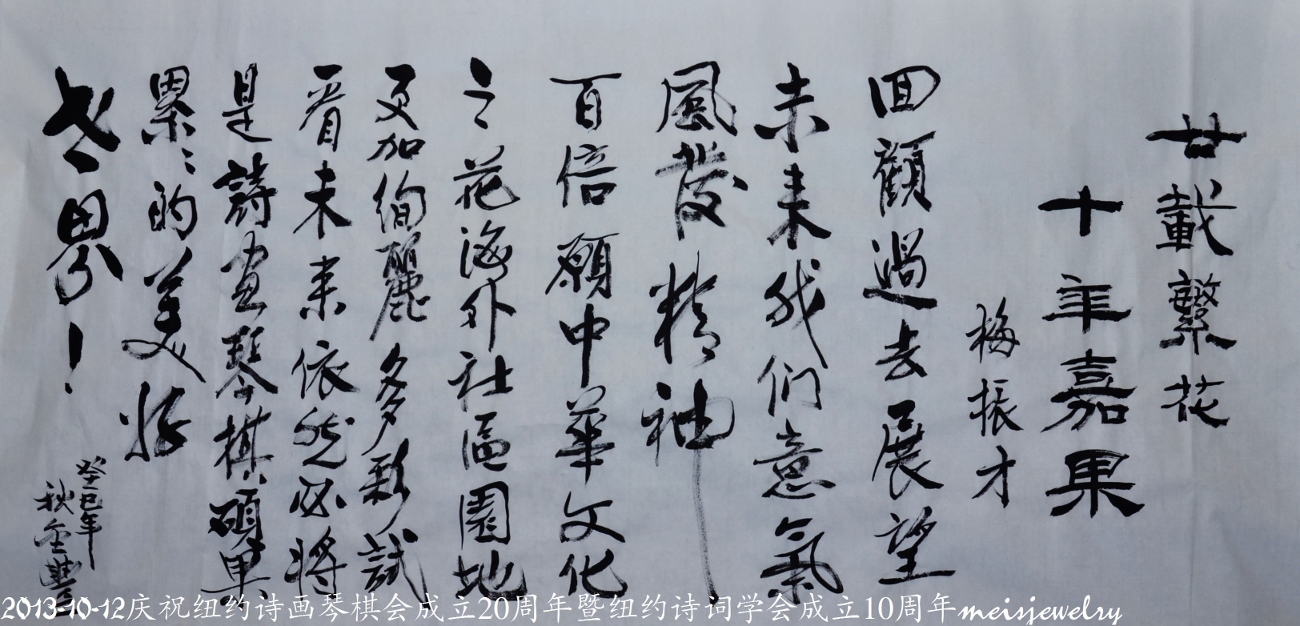 廿載繁花
十年嘉果
梅振才
回顧過去展望
未来我们意氣
風發精神
百倍願中華文化
之花海外社區園地
更加绚麗多彩試
看未来依然必将
是詩畫琴棋碩果
累々的美好
世界！
癸巳年
秋
2013-10-12庆祝纽约诗画琴棋会成立20周年暨纽约诗词学会成立10周年meisjewelry